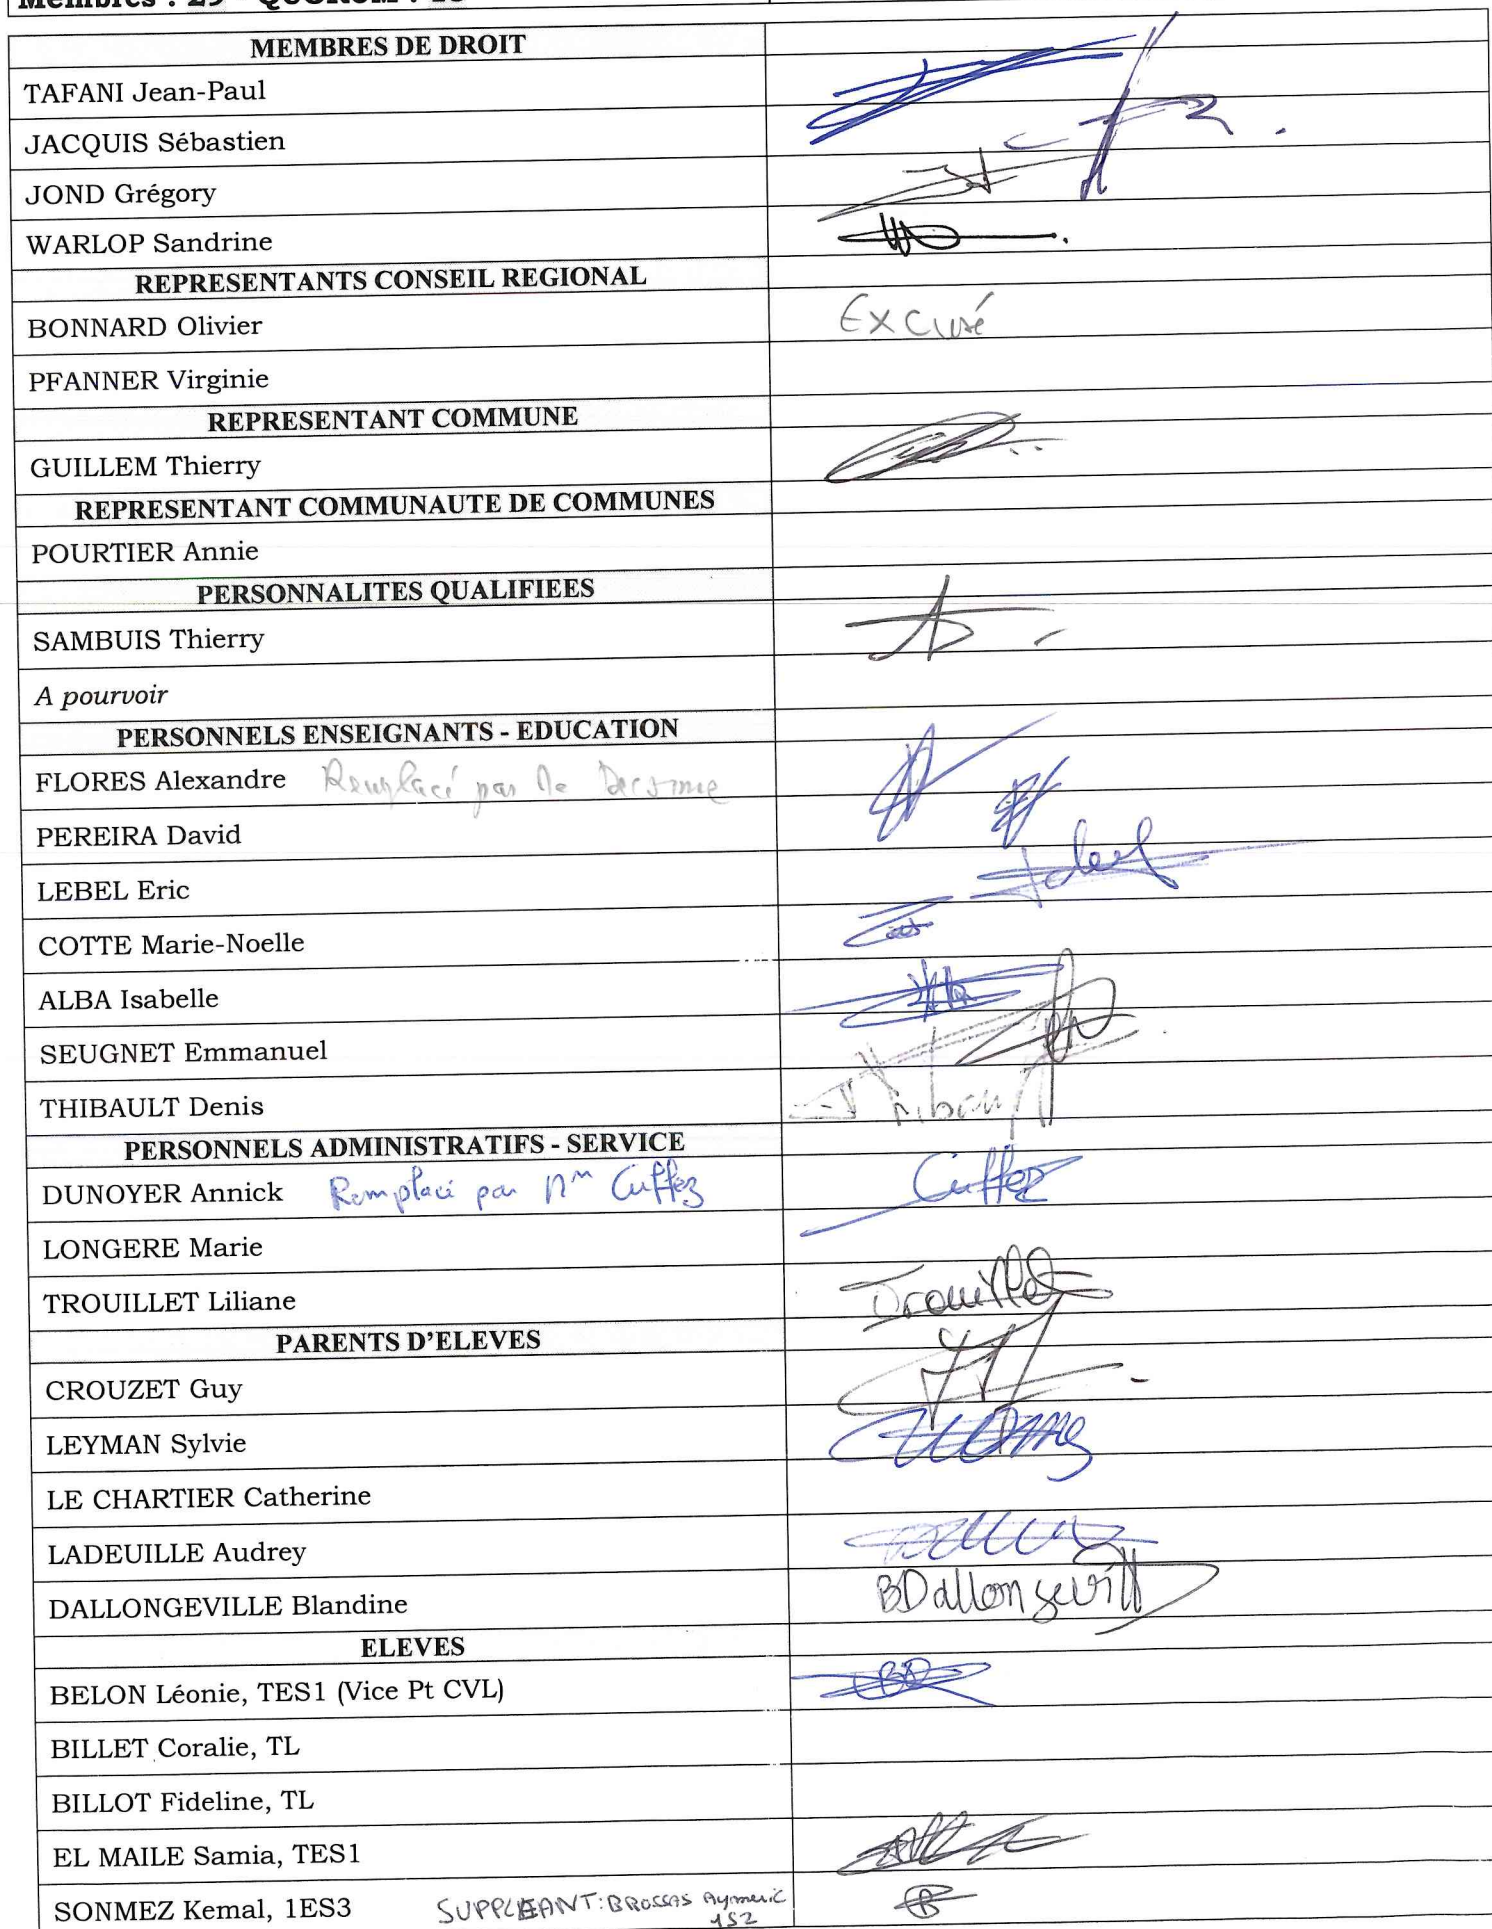 Membres : 29 - QUORUM : 15
MEMBRES DE DROIT
TAFANI Jean-Paul
JACQUIS Sébastien
JOND Grégory
WARLOP Sandrine
REPRESENTANTS CONSEIL REGIONAL
BONNARD Olivier Excusé
PFANNER Virginie
REPRESENTANT COMMUNE
GUILLEM Thierry
REPRESENTANT COMMUNAUTE DE COMMUNES
POURTIER Annie
PERSONNALITES QUALIFIEES
SAMBUIS Thierry
A pourvoir
PERSONNELS ENSEIGNANTS - EDUCATION
FLORES Alexandre Remplacé par
PEREIRA David
LEBEL Eric
COTTE Marie-Noelle
ALBA Isabelle
SEUGNET Emmanuel
THIBAULT Denis
PERSONNELS ADMINISTRATIFS - SERVICE
DUNOYER Annick Remplacé par Mm Cuffez Cuffez
LONGERE Marie
TROUILLET Liliane Trouillet
PARENTS D'ELEVES
CROUZET Guy
LEYMAN Sylvie
LE CHARTIER Catherine
LADEUILLE Audrey
DALLONGEVILLE Blandine BDallongevill
ELEVES
BELON Léonie, TES1 (Vice Pt CVL)
BILLET Coralie, TL
BILLOT Fideline, TL
EL MAILE Samia, TES1
SONMEZ Kemal, 1ES3 SUPPLEANT: BROSSAS Aymeric
1S2